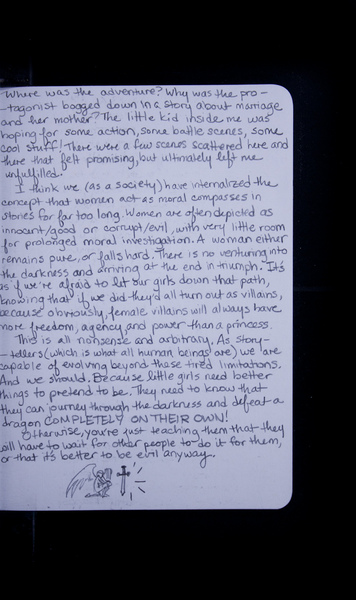 Where was the adventure? Why was the pro-
-tagonist bogged down in a story about marriage
and her mother? The little kid inside me was
hoping for some action, some battle scenes, some
cool stuff! There were a few scenes scattered here and
there that felt promising, but ultimately left me
unfulfilled.
I think we (as a society) have internalized the
concept that women act as moral compasses in
stories for far too long. Women are often depicted as
innocent/good or corrupt/evil, with very little room
for prolonged moral investigation. A woman either
remains pure, or falls hard. There is no venturing into
the darkness and arriving at the end in triumph. It's
as if we're afraid to let our girls down that path,
knowing that if we did they'd all turn out as villains,
because obviously, female villains will always have
more freedom, agency, and power than a princess.
This is all nonsense and arbitrary. As story-
-tellers (which is what all human beings are) we are
capable of evolving beyond these tired limitations.
And we should. Because little girls need better
things to pretend to be. They need to know that
they can journey through the darkness and defeat a
dragon COMPLETELY ON THEIR OWN!
Otherwise, you're just teaching them that they
will have to wait for other people to do it for them,
or that it's better to be evil anyway.